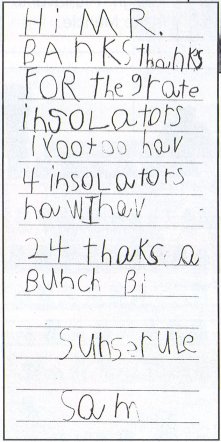 Hi MR.
BANKS thanks
FOR the grate
insoLators
I
hav
4 insoLators
now I hav
24 thaks a
Bunch Bi
Sunserule
Sam